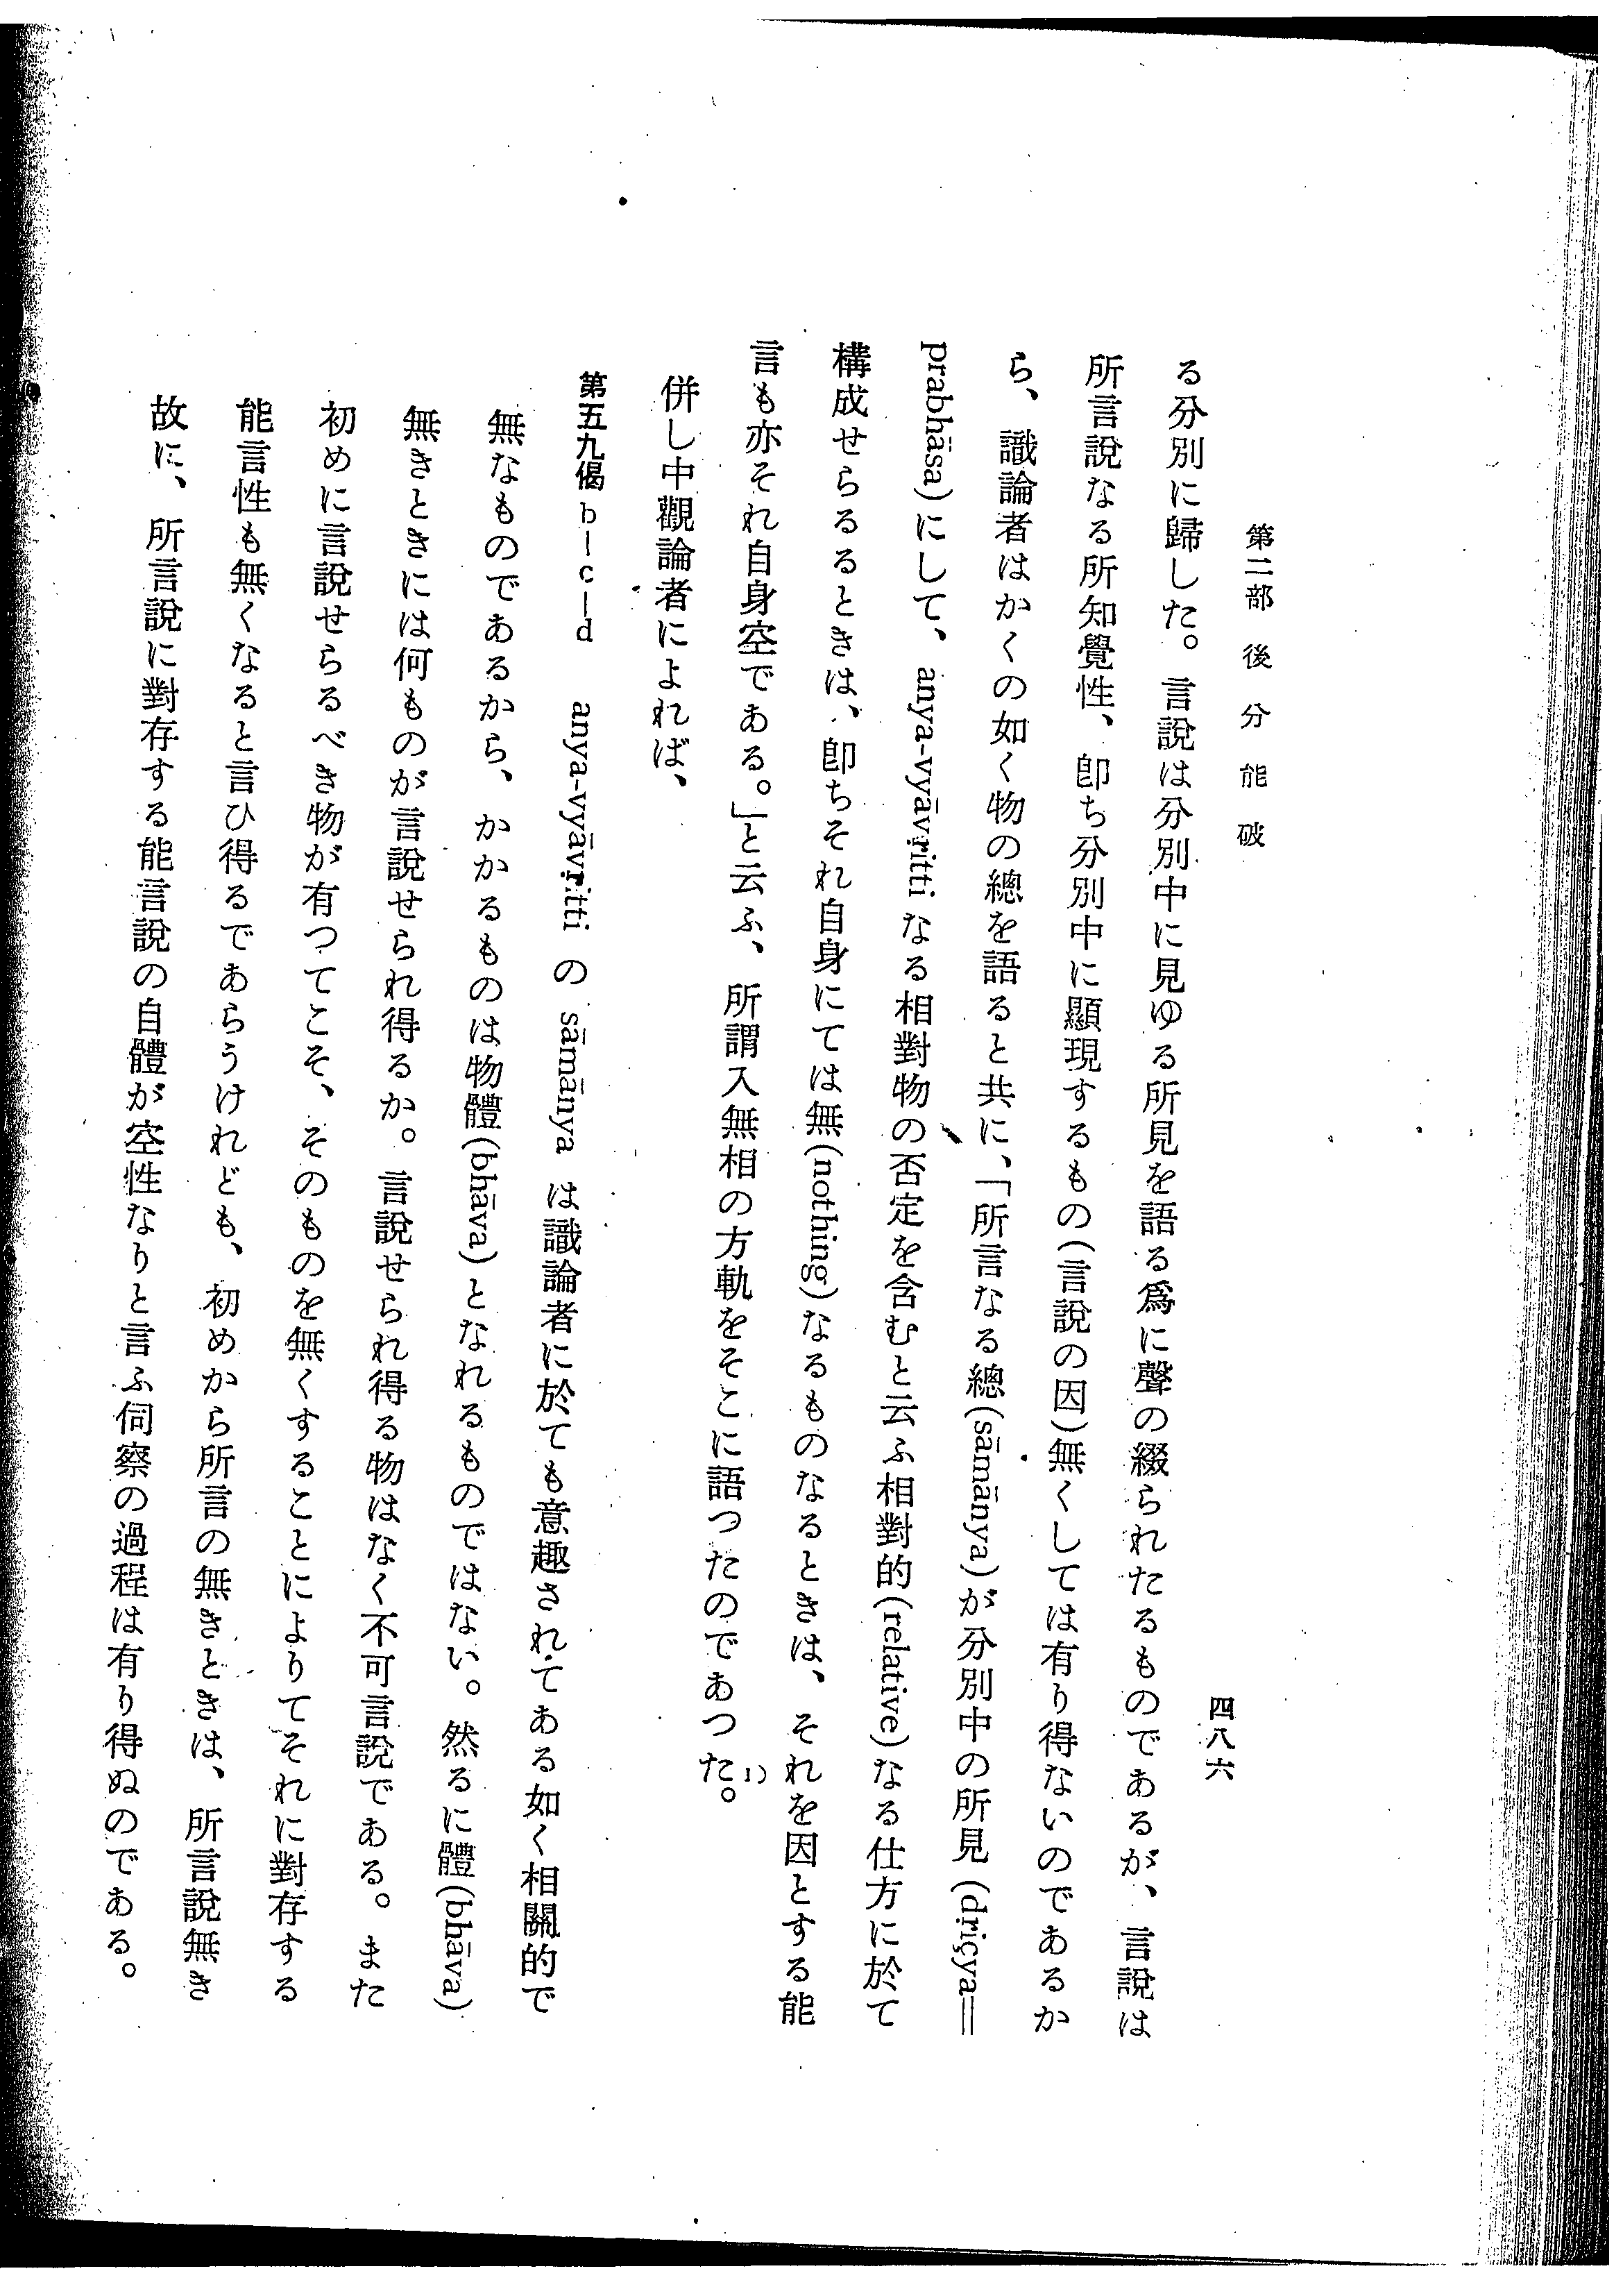 第二部　後分能破
四八六
る分別に歸した。言說は分別中に見ゆる所見を語る爲に聲の綴られたるものであるが、言說は
所言說なる所知覺性、卽ち分別中に顯現するもの(言說の因)無くしては有り得ないのであるか
ら、識論者はかくの如く物の總を語ると共に、「所言なる總(sāmānya)が分別中の所見(dṛiçya=
prabhāsa)にして、anya-vyāvṛitti なる相對物の否定を含むと云ふ相對的(relative)なる仕方に於て
構成せらるるときは、卽ちそれ自身にては無(nothing)なるものなるときは、それを因とする能
言も亦それ自身空である。」と云ふ、所謂入無相の方軌をそこに語つたのであつた。1)
併し中觀論者によれば、
第五九偈 b—c—d　anya-vyāvṛitti の sāmānya は識論者に於ても意趣されてある如く相關的で
無なものであるから、かかるものは物體(bhāva)となれるものではない。然るに體(bhāva)
無きときには何ものが言說せられ得るか。言說せられ得る物はなく不可言說である。また
初めに言說せらるべき物が有つてこそ、そのものを無くすることによりてそれに對存する
能言性も無くなると言ひ得るであらうけれども、初めから所言の無きときは、所言說無き
故に、所言說に對存する能言說の自體が空性なりと言ふ伺察の過程は有り得ぬのである。